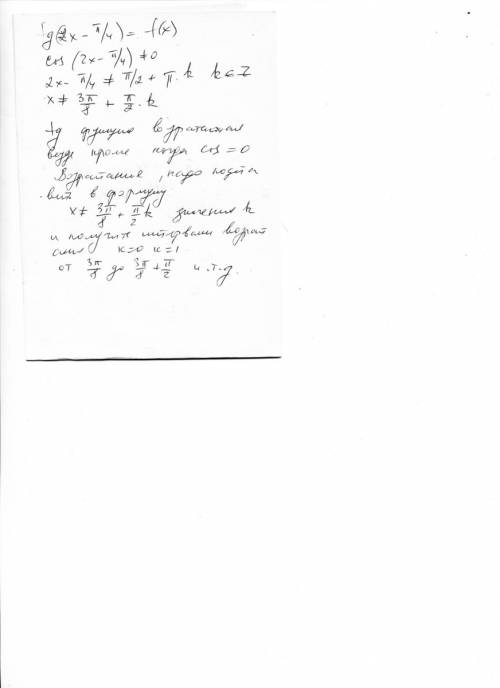 tg(2x - π/4) = f(x)
cos (2x - π/4) ≠ 0
2x - π/4 ≠ π/2 + π·k k ∈ Z
x ≠ 3π/8 + π/2·k
tg функция возрастающая
везде кроме когда cos = 0
Возрастание, надо подста
вить в формулу
x ≠ 3π/8 + π/2 k значения k
и получите интервалы возрат
ания k=0 k=1
от 3π/8 до 3π/8 + π/2 и.т.д.